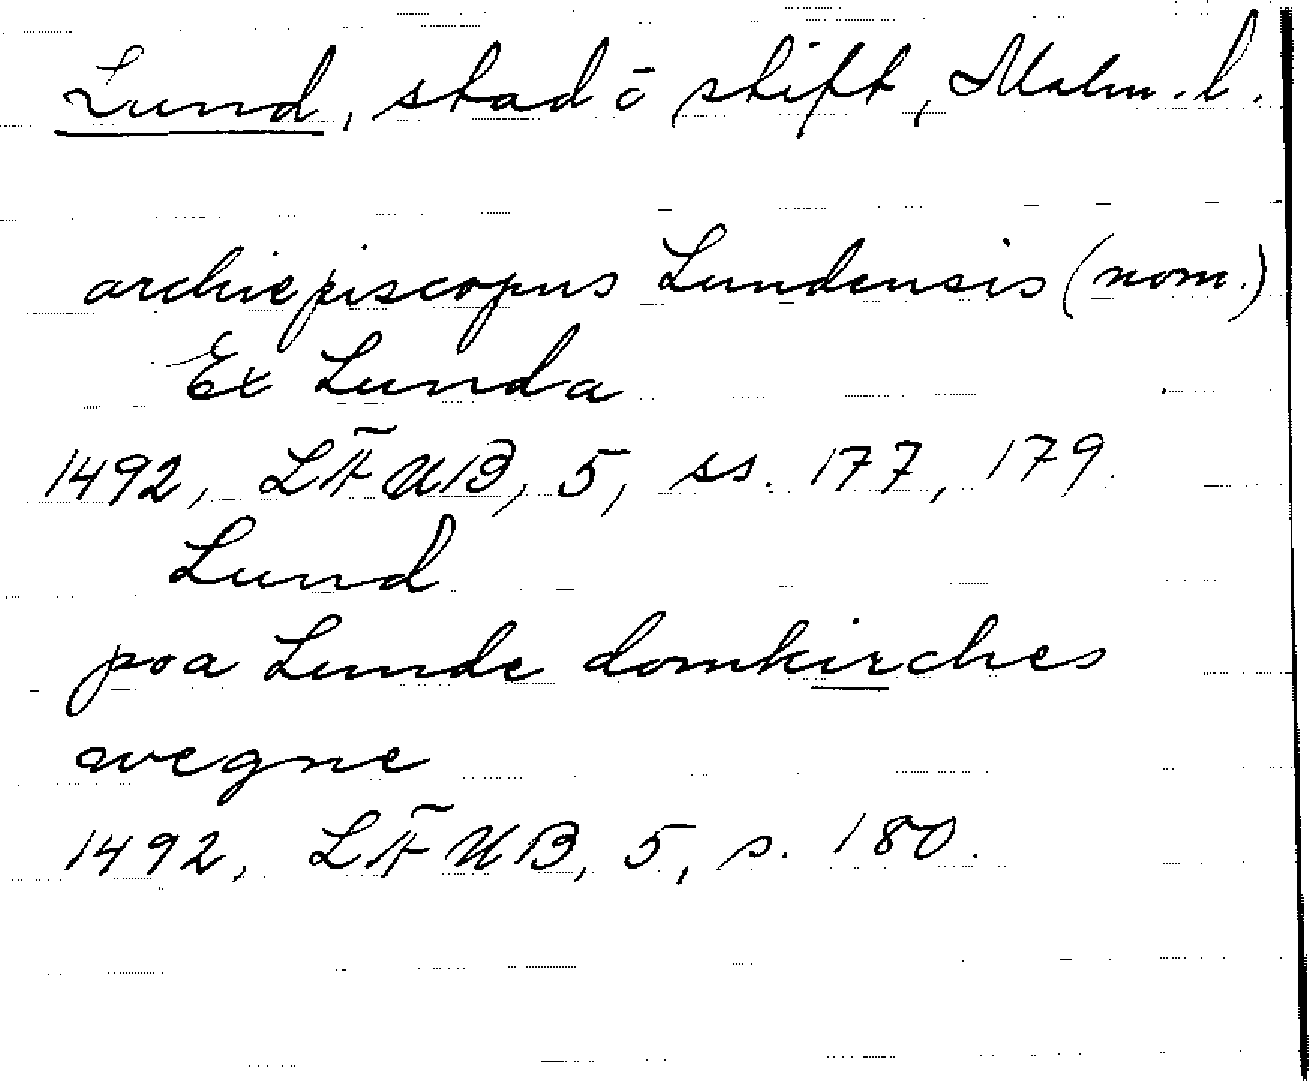 Lund, stad ō stift, Malm. l.
archiepiscopus Lundensis (nom.)
Ex Lunda
1492, LÄUB, 5, ss. 177, 179.
Lund
poa Lunde domkirches
wegne
1492, LÄUB, 5, s. 180.